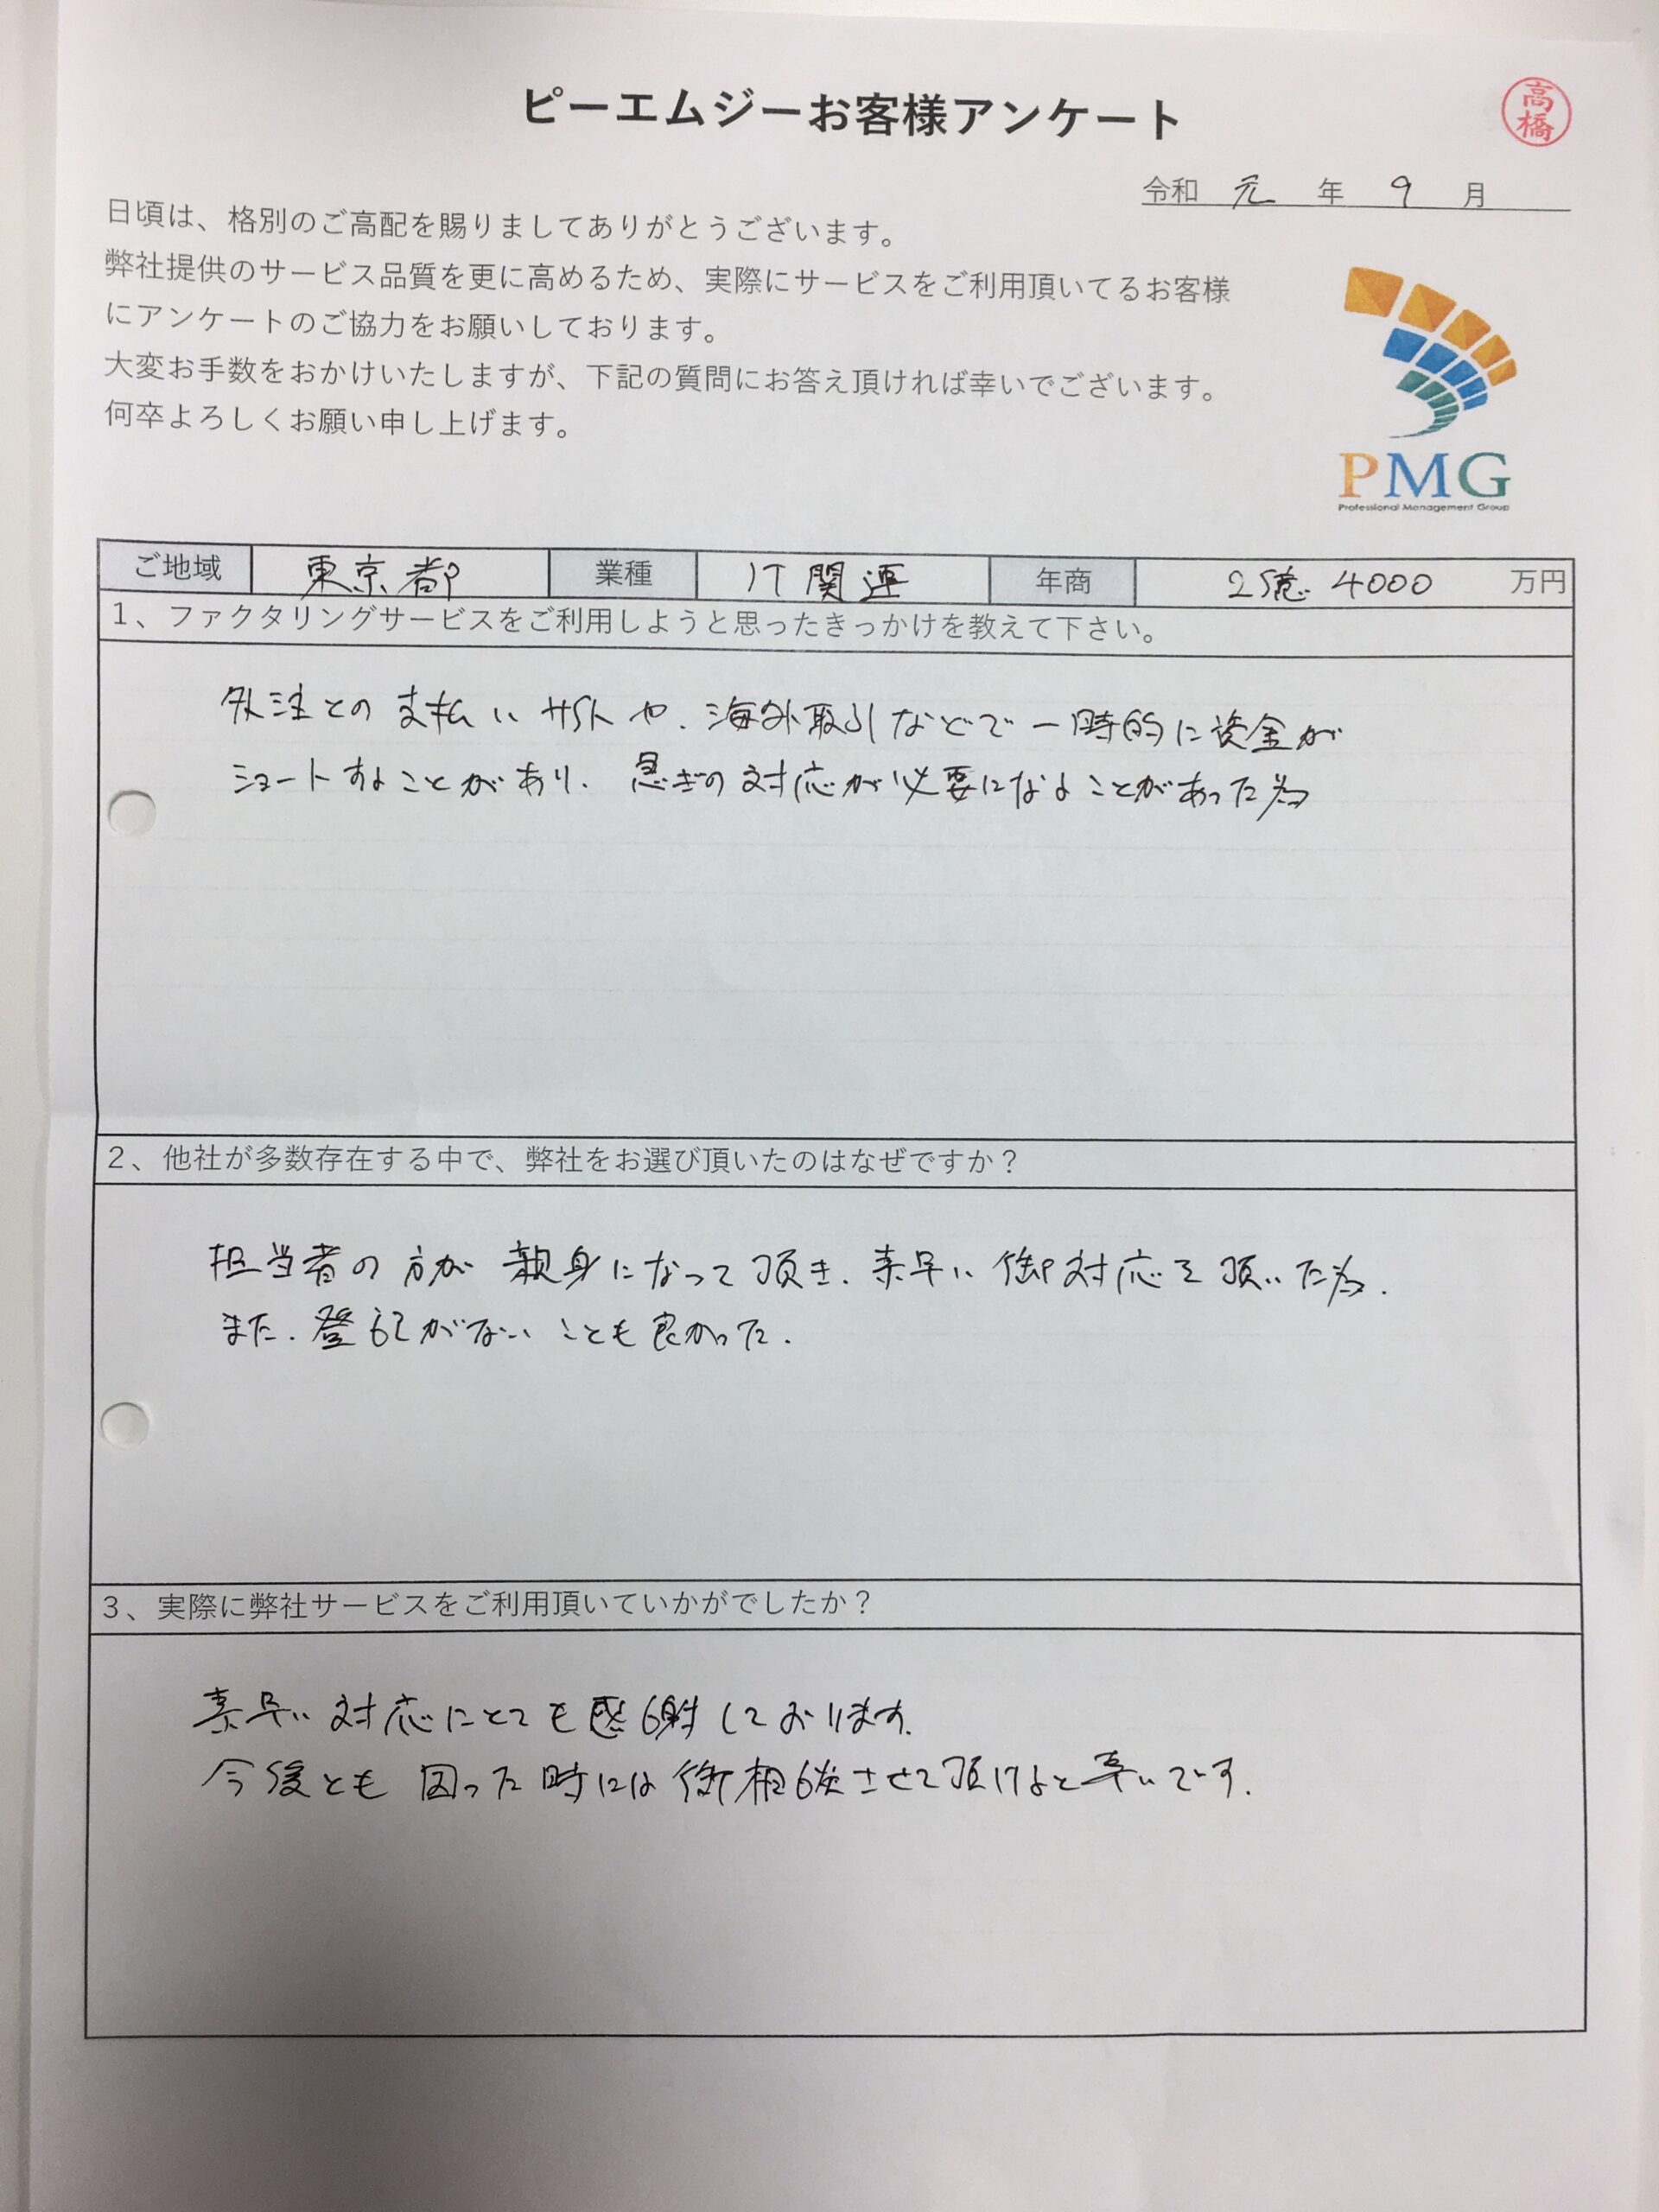 ピーエムジーお客様アンケート
高橋
令和 元 年 9 月
日頃は、格別のご高配を賜りましてありがとうございます。
弊社提供のサービス品質を更に高めるため、実際にサービスをご利用頂いてるお客様
にアンケートのご協力をお願いしております。
大変お手数をおかけいたしますが、下記の質問にお答え頂ければ幸いでございます。
何卒よろしくお願い申し上げます。
PMG
Professional Management Group
ご地域 東京都 業種 IT関連 年商 2億4000 万円
1、ファクタリングサービスをご利用しようと思ったきっかけを教えて下さい。
外注との支払いサイトや、海外取引などで一時的に資金が
ショートすることがあり、急ぎの対応が必要になることがあった為
2、他社が多数存在する中で、弊社をお選び頂いたのはなぜですか？
担当者の方が親身になって頂き、素早い御対応を頂いた為。
また、登記がないことも良かった。
3、実際に弊社サービスをご利用頂いていかがでしたか？
素早い対応にとても感謝しております。
今後とも困った時には御相談させて頂けると幸いです。